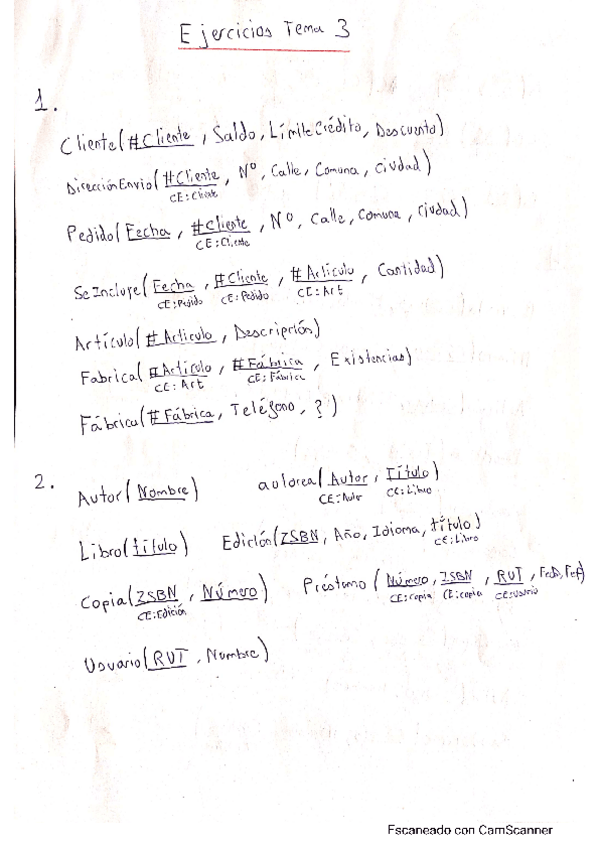 Ejercicios Tema 3
1.
Cliente(#Cliente, Saldo, LímiteCrédito, Descuento)
DirecciónEnvio(#Cliente, Nº, Calle, Comuna, Ciudad)
CE:Cliente
Pedido(Fecha, #Cliente, Nº, Calle, Comuna, Ciudad)
CE:Cliente
SeIncluye(Fecha, #Cliente, #Artículo, Cantidad)
CE:Pedido CE:Pedido CE:Art
Artículo(#Articulo, Descripción)
Fabrica(#Artículo, #Fábrica, Existencias)
CE:Art CE:Fábrica
Fábrica(#Fábrica, Teléfono, ?)
2.
Autor(Nombre) autorea(Autor, Título)
CE:Autor CE:Libro
Libro(título) Edición(ISBN, Año, Idioma, título)
CE:Libro
Copia(ISBN, Número) Préstamo(Número, ISBN, RUT, FecD, FecP)
CE:Edición CE:copia CE:copia CE:usuario
Usuario(RUT, Nombre)
Escaneado con CamScanner